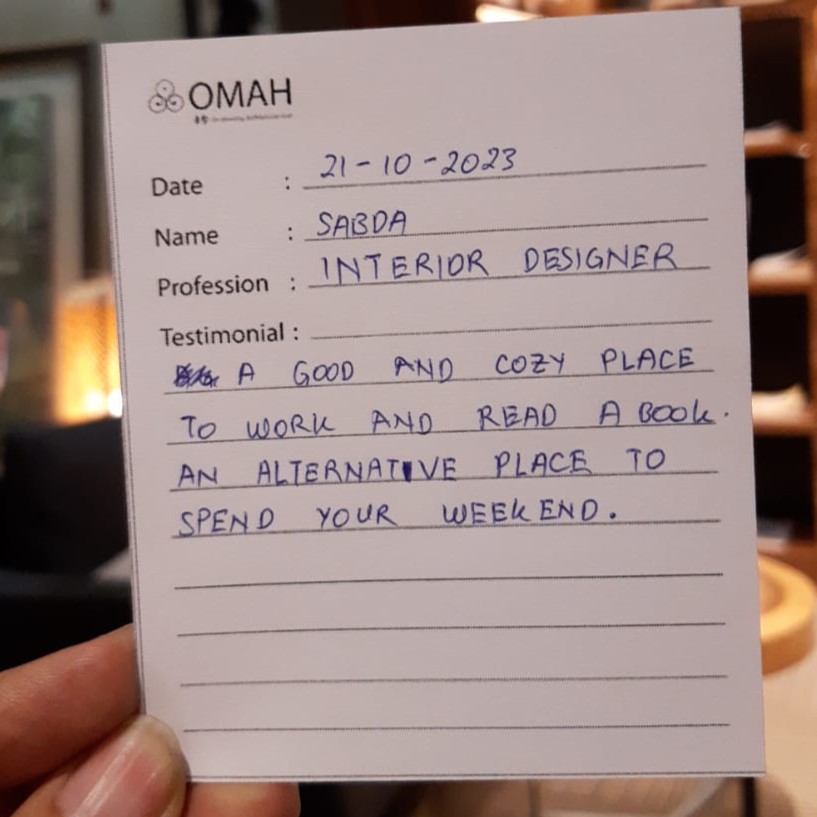 OMAH
Date : 21-10-2023
Name : SABDA
Profession : INTERIOR DESIGNER
Testimonial :
A GOOD AND COZY PLACE
TO WORK AND READ A BOOK.
AN ALTERNATIVE PLACE TO
SPEND YOUR WEEKEND.